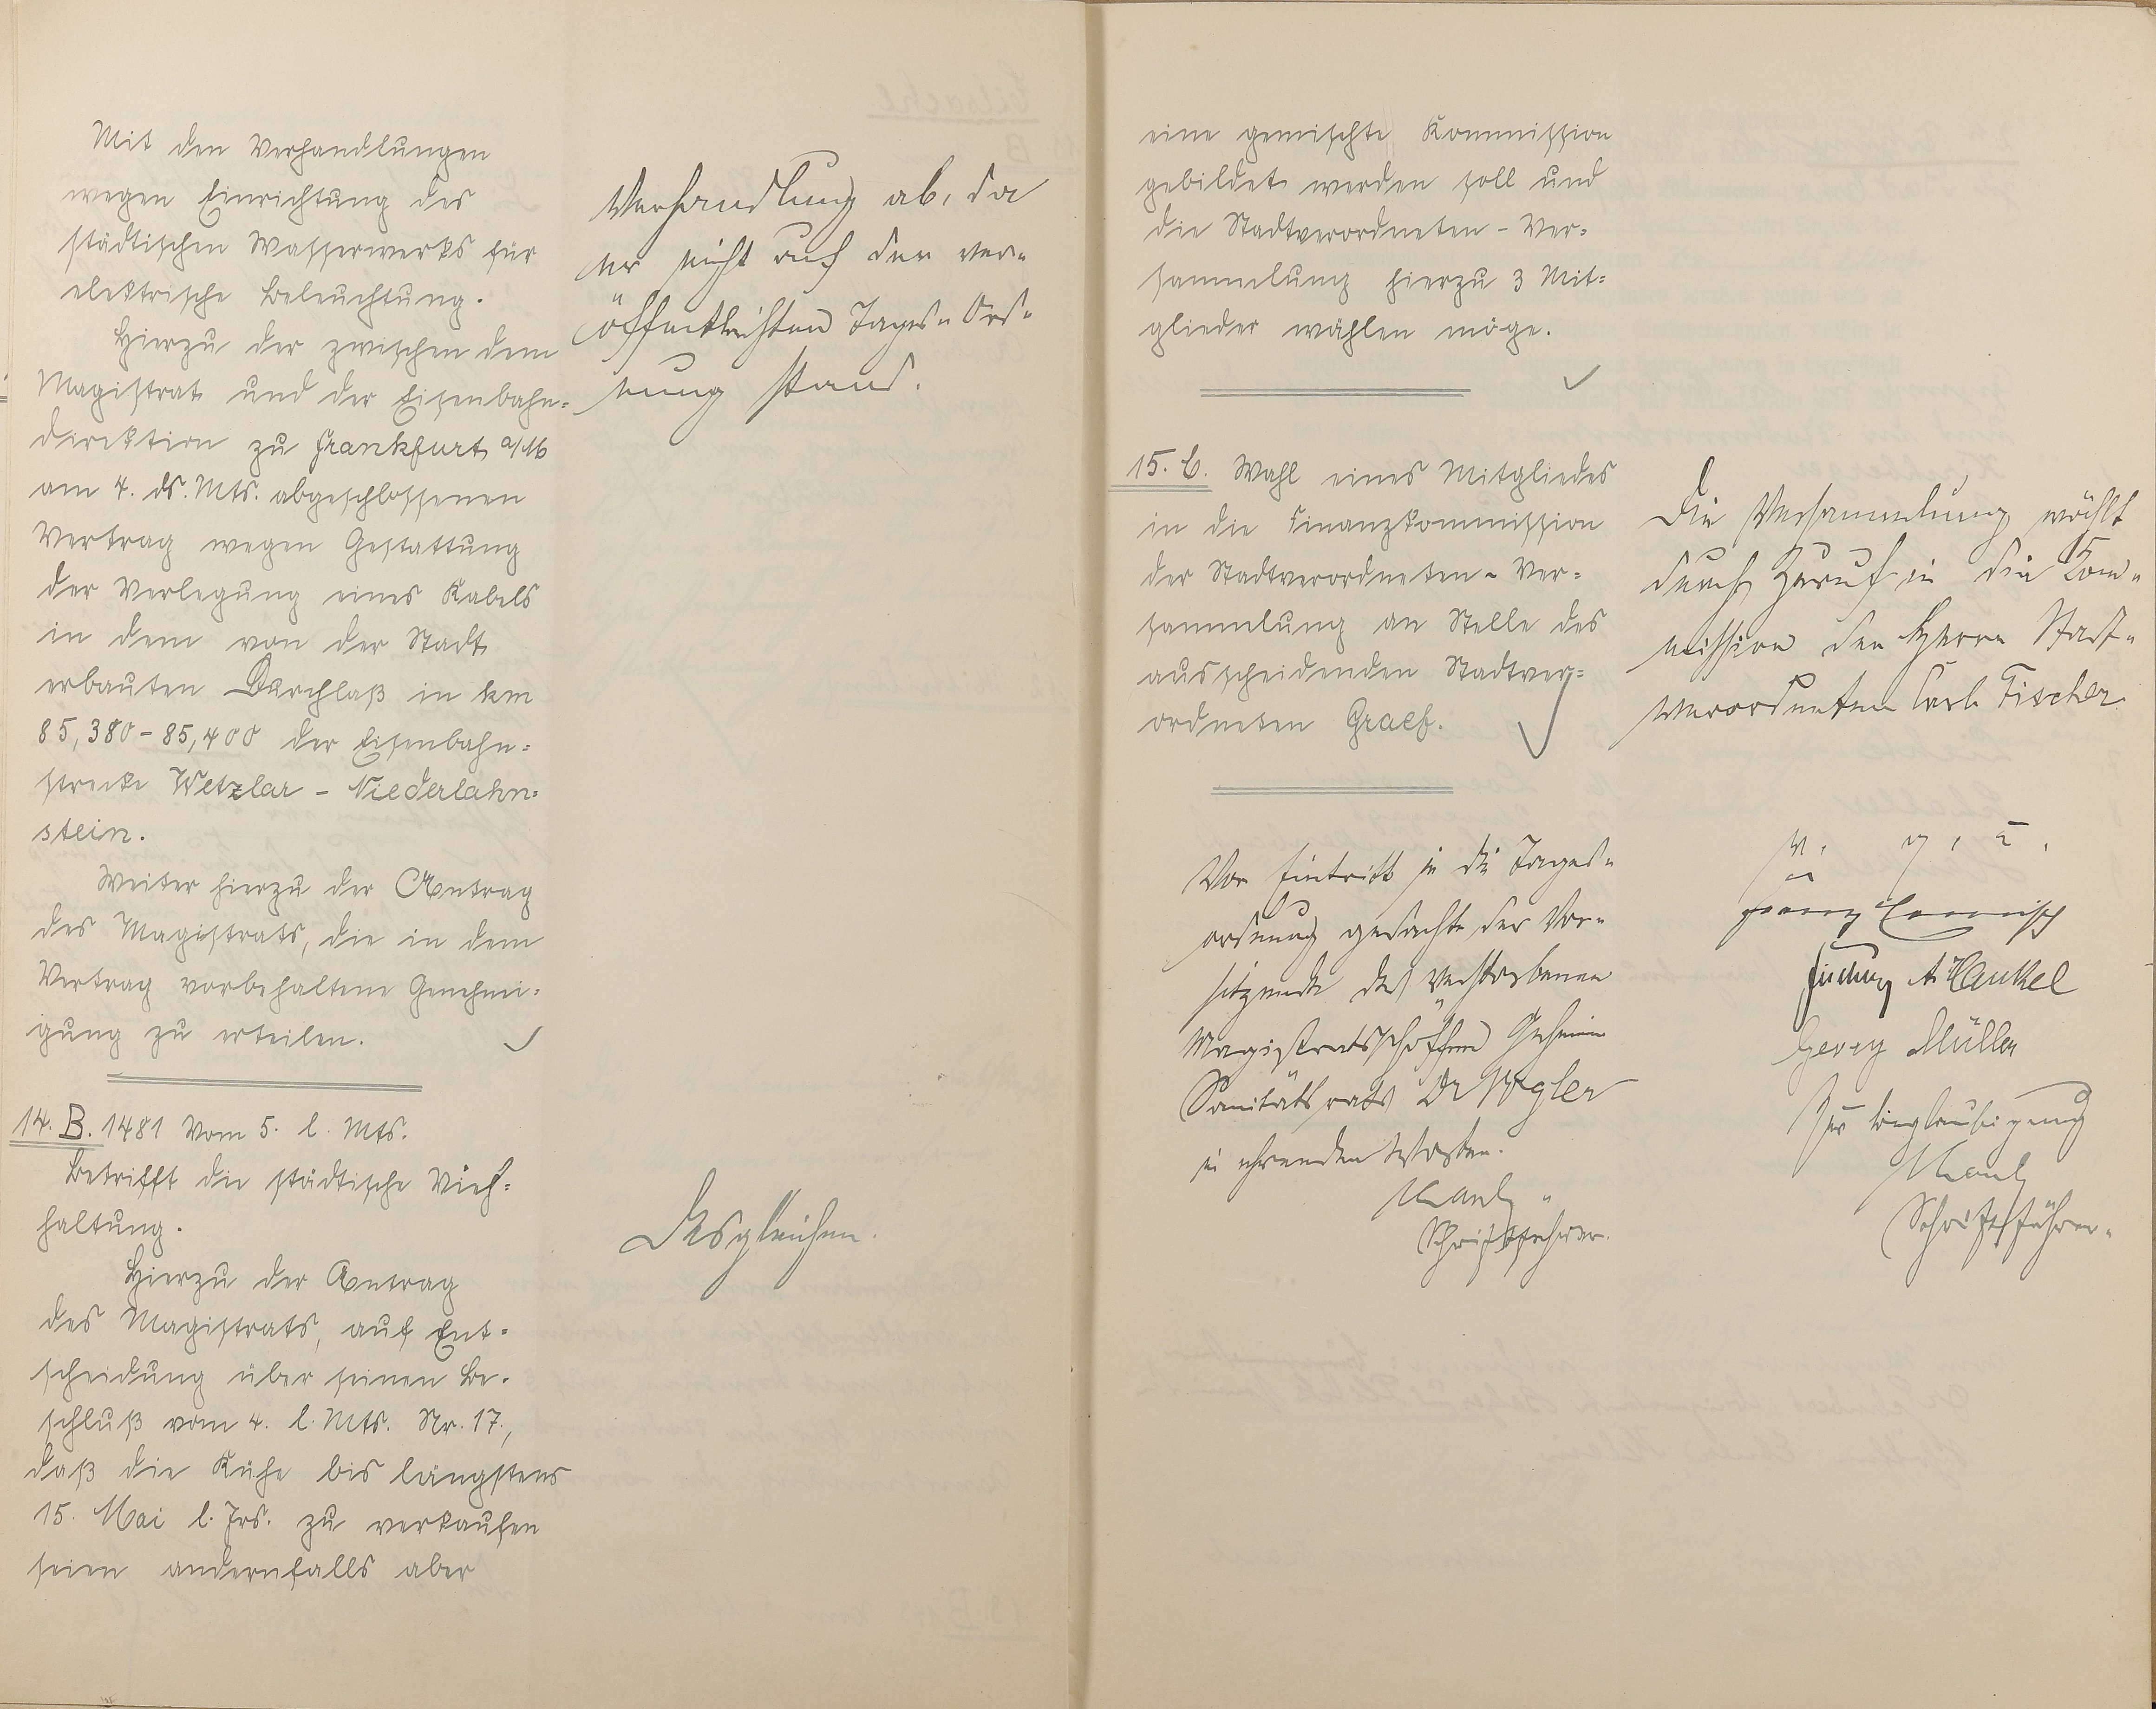 Mit den Verhandlungen
wegen Einrichtung des
städtischen Wasserwerks für
elektrische Beleuchtung.
Hierzu der zwischen dem
Magistrat und der Eisenbahn-
direktion zu Frankfurt a/M
am 4. ds. Mts. abgeschlossenen
Vertrag wegen Gestattung
der Verlegung eines Kabels
in dem von der Stadt
erbauten Durchlaß in km
85,380 - 85,400 der Eisenbahn-
strecke Wetzlar - Niederlahn-
stein.
Weiter hierzu der Antrag
des Magistrats, die in dem
Vertrag vorbehaltene Genehmi-
gung zu erteilen.
14. B. 1481 Vom 5. l. Mts.
Betrifft die städtische Vieh-
haltung.
Hierzu der Antrag
des Magistrats, auf Ent-
scheidung über seinen Be-
schluß vom 4. l. Mts. Nr. 17.,
daß die Kühe bis längstens
15. Mai l. Jrs. zu verkaufen
seien andernfalls aber
Verhandlung ab, da
er nicht auf der ver-
öffentlichten Tages-Ord-
nung stand.
Desgleichen.
eine gemischte Kommission
gebildet werden soll und
die Stadtverordneten-Ver-
sammlung hierzu 3 Mit-
glieder wählen möge.
15. C. Wahl eines Mitgliedes
in die Finanzkommission
der Stadtverordneten-Ver-
sammlung an Stelle des
ausscheidenden Stadtver-
ordneten Graef.
Die Versammlung wählt
durch Zuruf in die Kom-
mission den Herrn Stadt-
verordneten Carl Fischer.
Vor Eintritt in die Tages-
ordnung gedachte der Vor-
sitzende des verstorbenen
Magistratsschöffen Geheim
Sanitätsrats Dr Vigler
in ehrenden Worten.
Schriftführer.
v. g. u.
Franz
A. Hankel
Georg Müller
Zur Beglaubigung
Schriftführer.